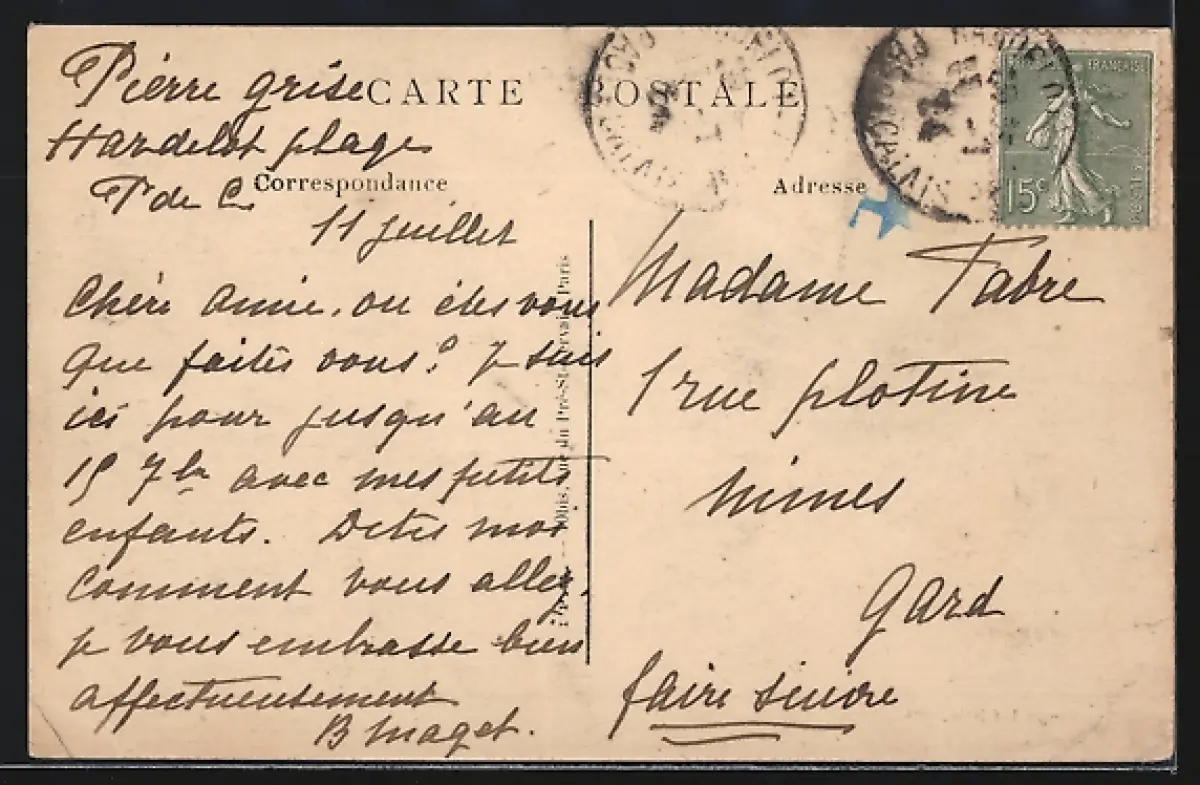 Pierre grise
Hardelot plage
P de C
11 juillet
Chère amie, ou êtes vous
que faites vous? Je suis
ici pour jusqu'au
15 7bre avec mes petits
enfants. Dites moi
comment vous allez,
je vous embrasse bien
affectueusement
B Maget.
CARTE POSTALE
Correspondance
Adresse
RÉPUBLIQUE FRANÇAISE
15c
POSTES
Madame Fabre
1 rue plotine
Nimes
Gard
faire suivre
rue du Pré-St-Gervais, Paris
PAS DE CALAIS